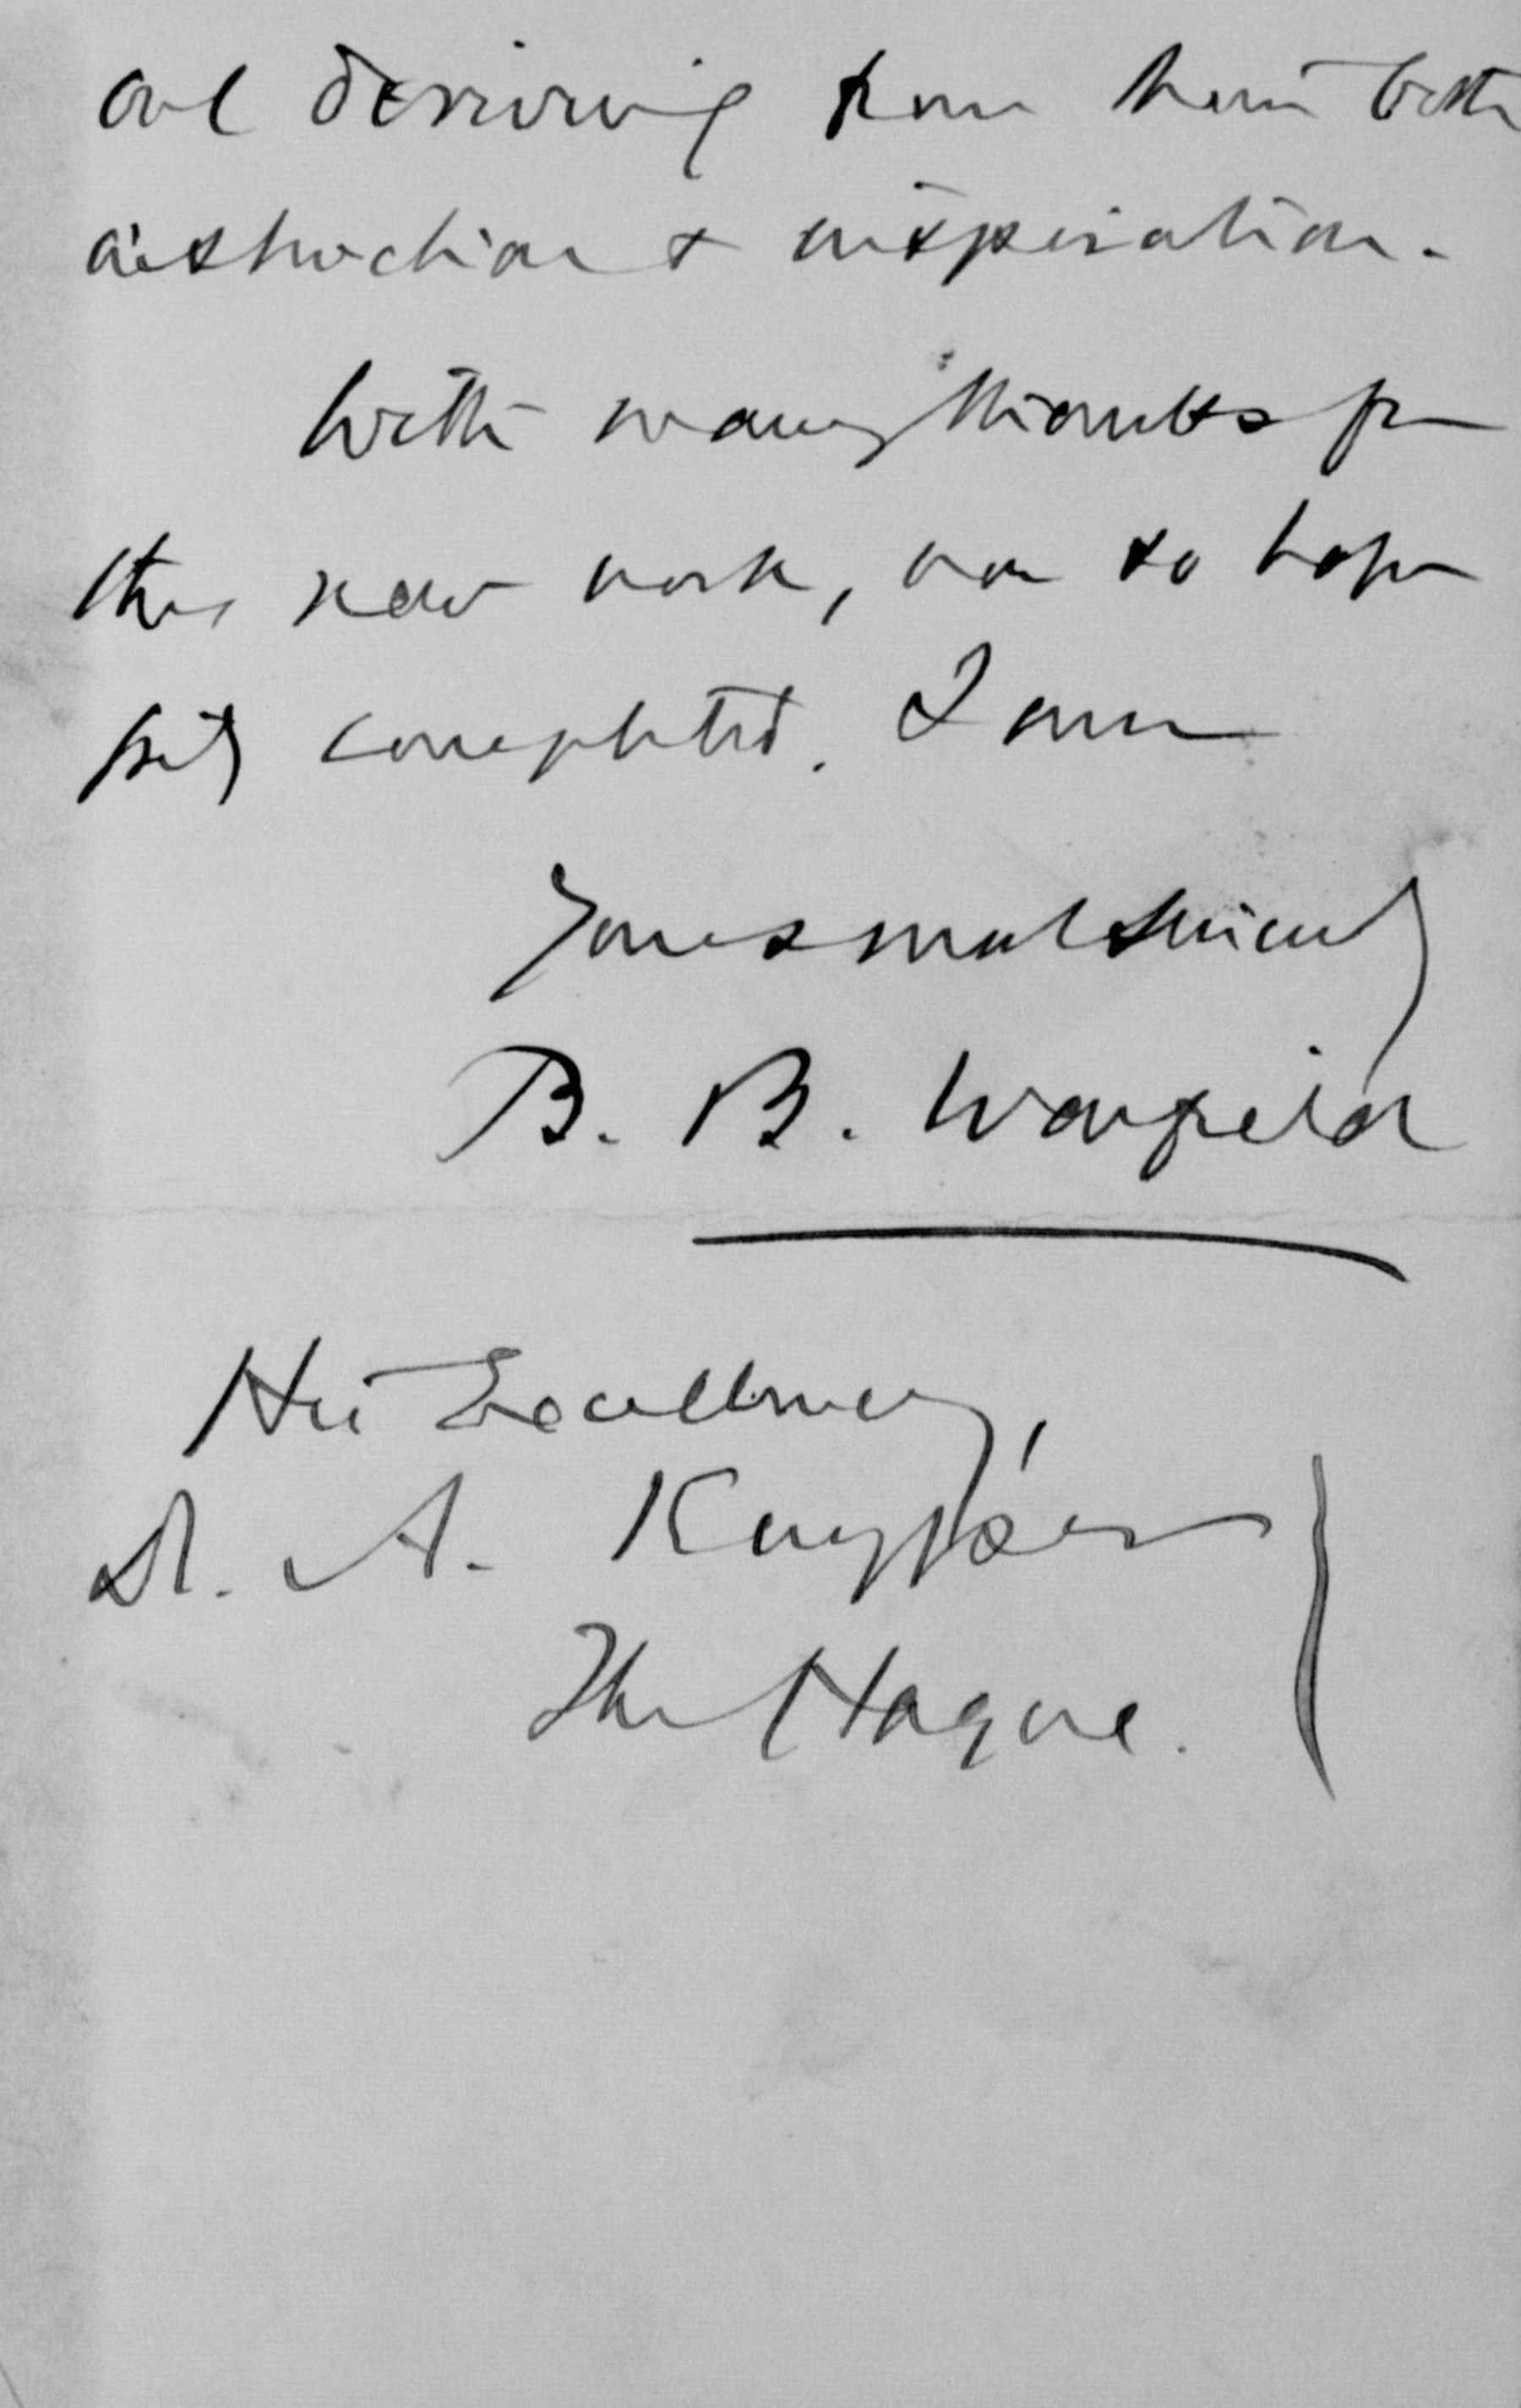 and deriving from them both
instruction & inspiration.
With many thanks for
this new work, now so happily
completed, I am
Yours most sincerely
B. B. Warfield
His Excellency,
Dr. A. Kuyper
The Hague.